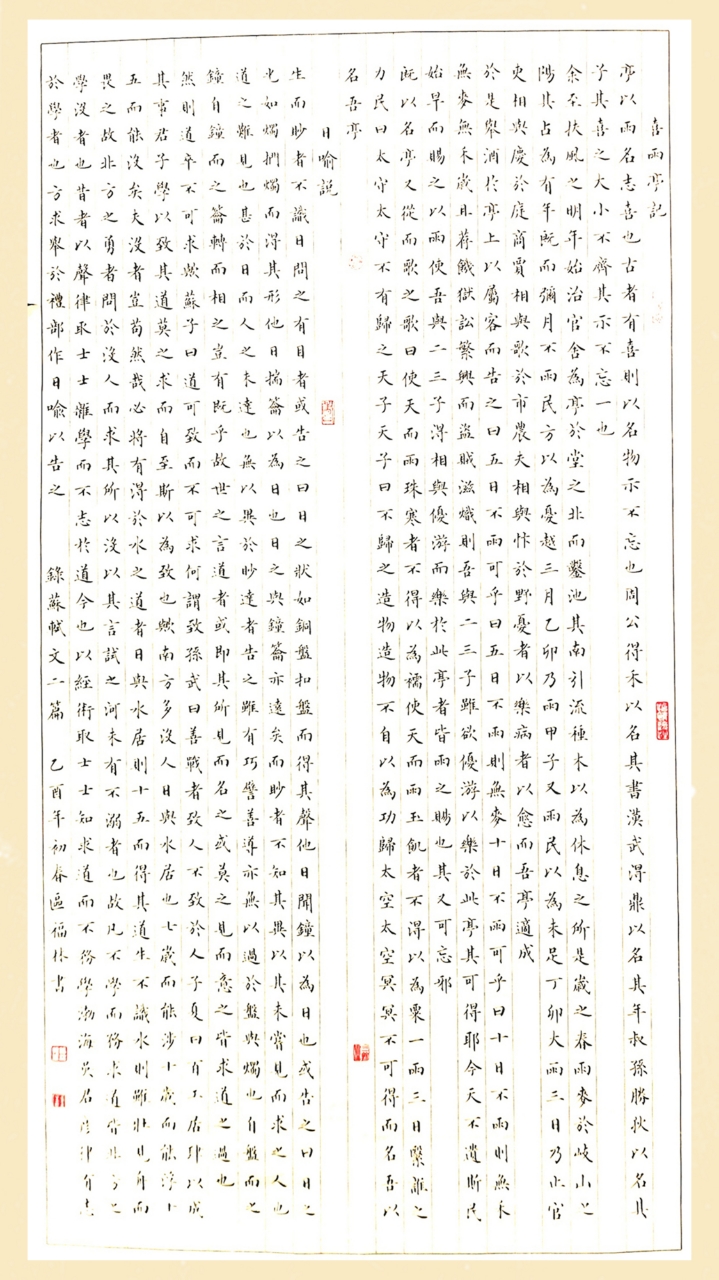 喜雨亭記
亭以雨名志喜也古者有喜則以名物示不忘也周公得禾以名其書漢武得鼎以名其年叔孫勝狄以名其
子其喜之大小不齊其示不忘一也
余至扶風之明年始治官舍為亭於堂之北而鑿池其南引流種木以為休息之所是歲之春雨麥於岐山之
陽其占為有年既而彌月不雨民方以為憂越三月乙卯乃雨甲子又雨民以為未足丁卯大雨三日乃止官
吏相與慶於庭商賈相與歌於市農夫相與忭於野憂者以樂病者以愈而吾亭適成
於是舉酒於亭上以屬客而告之曰五日不雨可乎曰五日不雨則無麥十日不雨可乎曰十日不雨則無禾
無麥無禾歲且荐饑獄訟繁興而盜賊滋熾則吾與二三子雖欲優游以樂於此亭其可得耶今天不遺斯民
始旱而賜之以雨使吾與二三子得相與優游而樂於此亭者皆雨之賜也其又可忘邪
既以名亭又從而歌之歌曰使天而雨珠寒者不得以為襦使天而雨玉飢者不得以為粟一雨三日繄誰之
力民曰太守太守不有歸之天子天子曰不歸之造物造物不自以為功歸太空太空冥冥不可得而名吾以
名吾亭
日喻説
生而眇者不識日問之有目者或告之曰日之狀如銅盤扣盤而得其聲他日聞鐘以為日也或告之曰日之
光如燭捫燭而得其形他日揣籥以為日也日之與鐘籥亦遠矣而眇者不知其異以其未嘗見而求之人也
道之難見也甚於日而人之未達也無以異於眇達者告之雖有巧譬善導亦無以過於盤與燭也自盤而之
鐘自鐘而之籥轉而相之豈有既乎故世之言道者或即其所見而名之或莫之見而意之皆求道之過也
然則道卒不可求歟蘇子曰道可致而不可求何謂致孫武曰善戰者致人不致於人子夏曰百工居肆以成
其事君子學以致其道莫之求而自至斯以為致也歟南方多沒人日與水居也七歲而能涉十歲而能浮十
五而能沒矣夫沒者豈苟然哉必將有得於水之道者日與水居則十五而得其道生不識水則雖壯見舟而
畏之故北方之勇者問於沒人而求其所以沒以其言試之河未有不溺者也故凡不學而務求道皆北方之
學沒者也昔者以聲律取士士雜學而不志於道今也以經術取士士知求道而不務學渤海吳君彥律有志
於學者也方求舉於禮部作日喻以告之 錄蘇軾文二篇 乙酉年初春區福林書